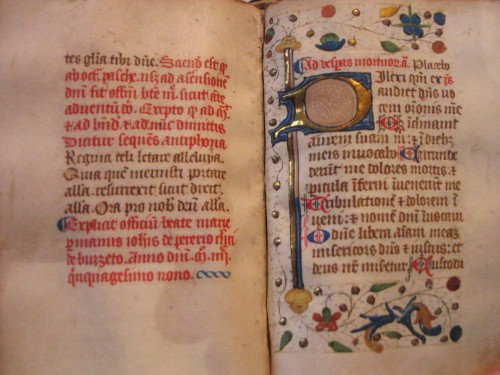 tes gl̃ia tibi dñe. Sacñd est q
ab oct̃ pasche. usq̨ ad ascensionẽ
dñi fit offiũ btẽ m̃. sicut ãte
adventũ. Excepto q ad
⁊ ad bñd. ⁊ ad nũc dimittis
Dicatur sequẽs antiphona
Regina celi letare alleluya.
Quia quẽ meruisti portare
alla. resurrexit sicut dixit.
alla. Ora pro nob̃ deũ. alla.
Explicit officiũ beate marie
p manus iohis de perego clici
de burzeto. Anno dñi. m̃. iiijͨ
qñquagesimo nono.
Ad vesp̃as mortuor̃. a. Placebo
Dilexi qm̃ ex
audiet dñs vo
cem orõnis mee
Q inclinavit
aurem suam m̃. ⁊ ĩ dieb̨
meis invocabo. Circunde
derunt me dolores mortis. ⁊
picula ĩferni ĩvenerunt me
Tribulationẽ ⁊ dolorem ĩ
veni. ⁊ nomẽ dñi ĩvocavi
O dñe libera aĩam meaʒ
misericors dñs ⁊ iustus. et
deus nr̃ misetur. Custodi